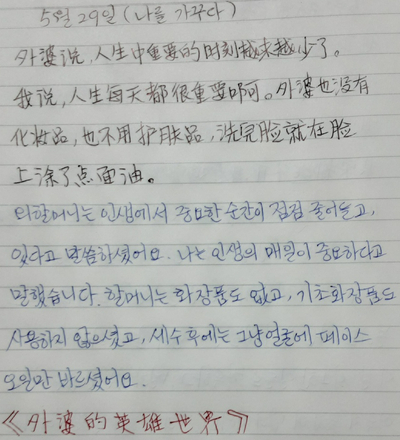 5월 29일 (나를 가꾸다)
外婆说,人生中重要的时刻越来越少了。
我说,人生每天都很重要啊。外婆也没有
化妆品,也不用护肤品,洗完脸就在脸
上涂了点面油。
외할머니는 인생에서 중요한 순간이 점점 줄어들고,
있다고 말씀하셨어요. 나는 인생의 매일이 중요하다고
말했습니다. 할머니는 화장품도 없고, 기초화장품도
사용하지 않으셨고, 세수 후에는 그냥 얼굴에 페이스
오일만 바르셨어요.
《外婆的英雄世界》